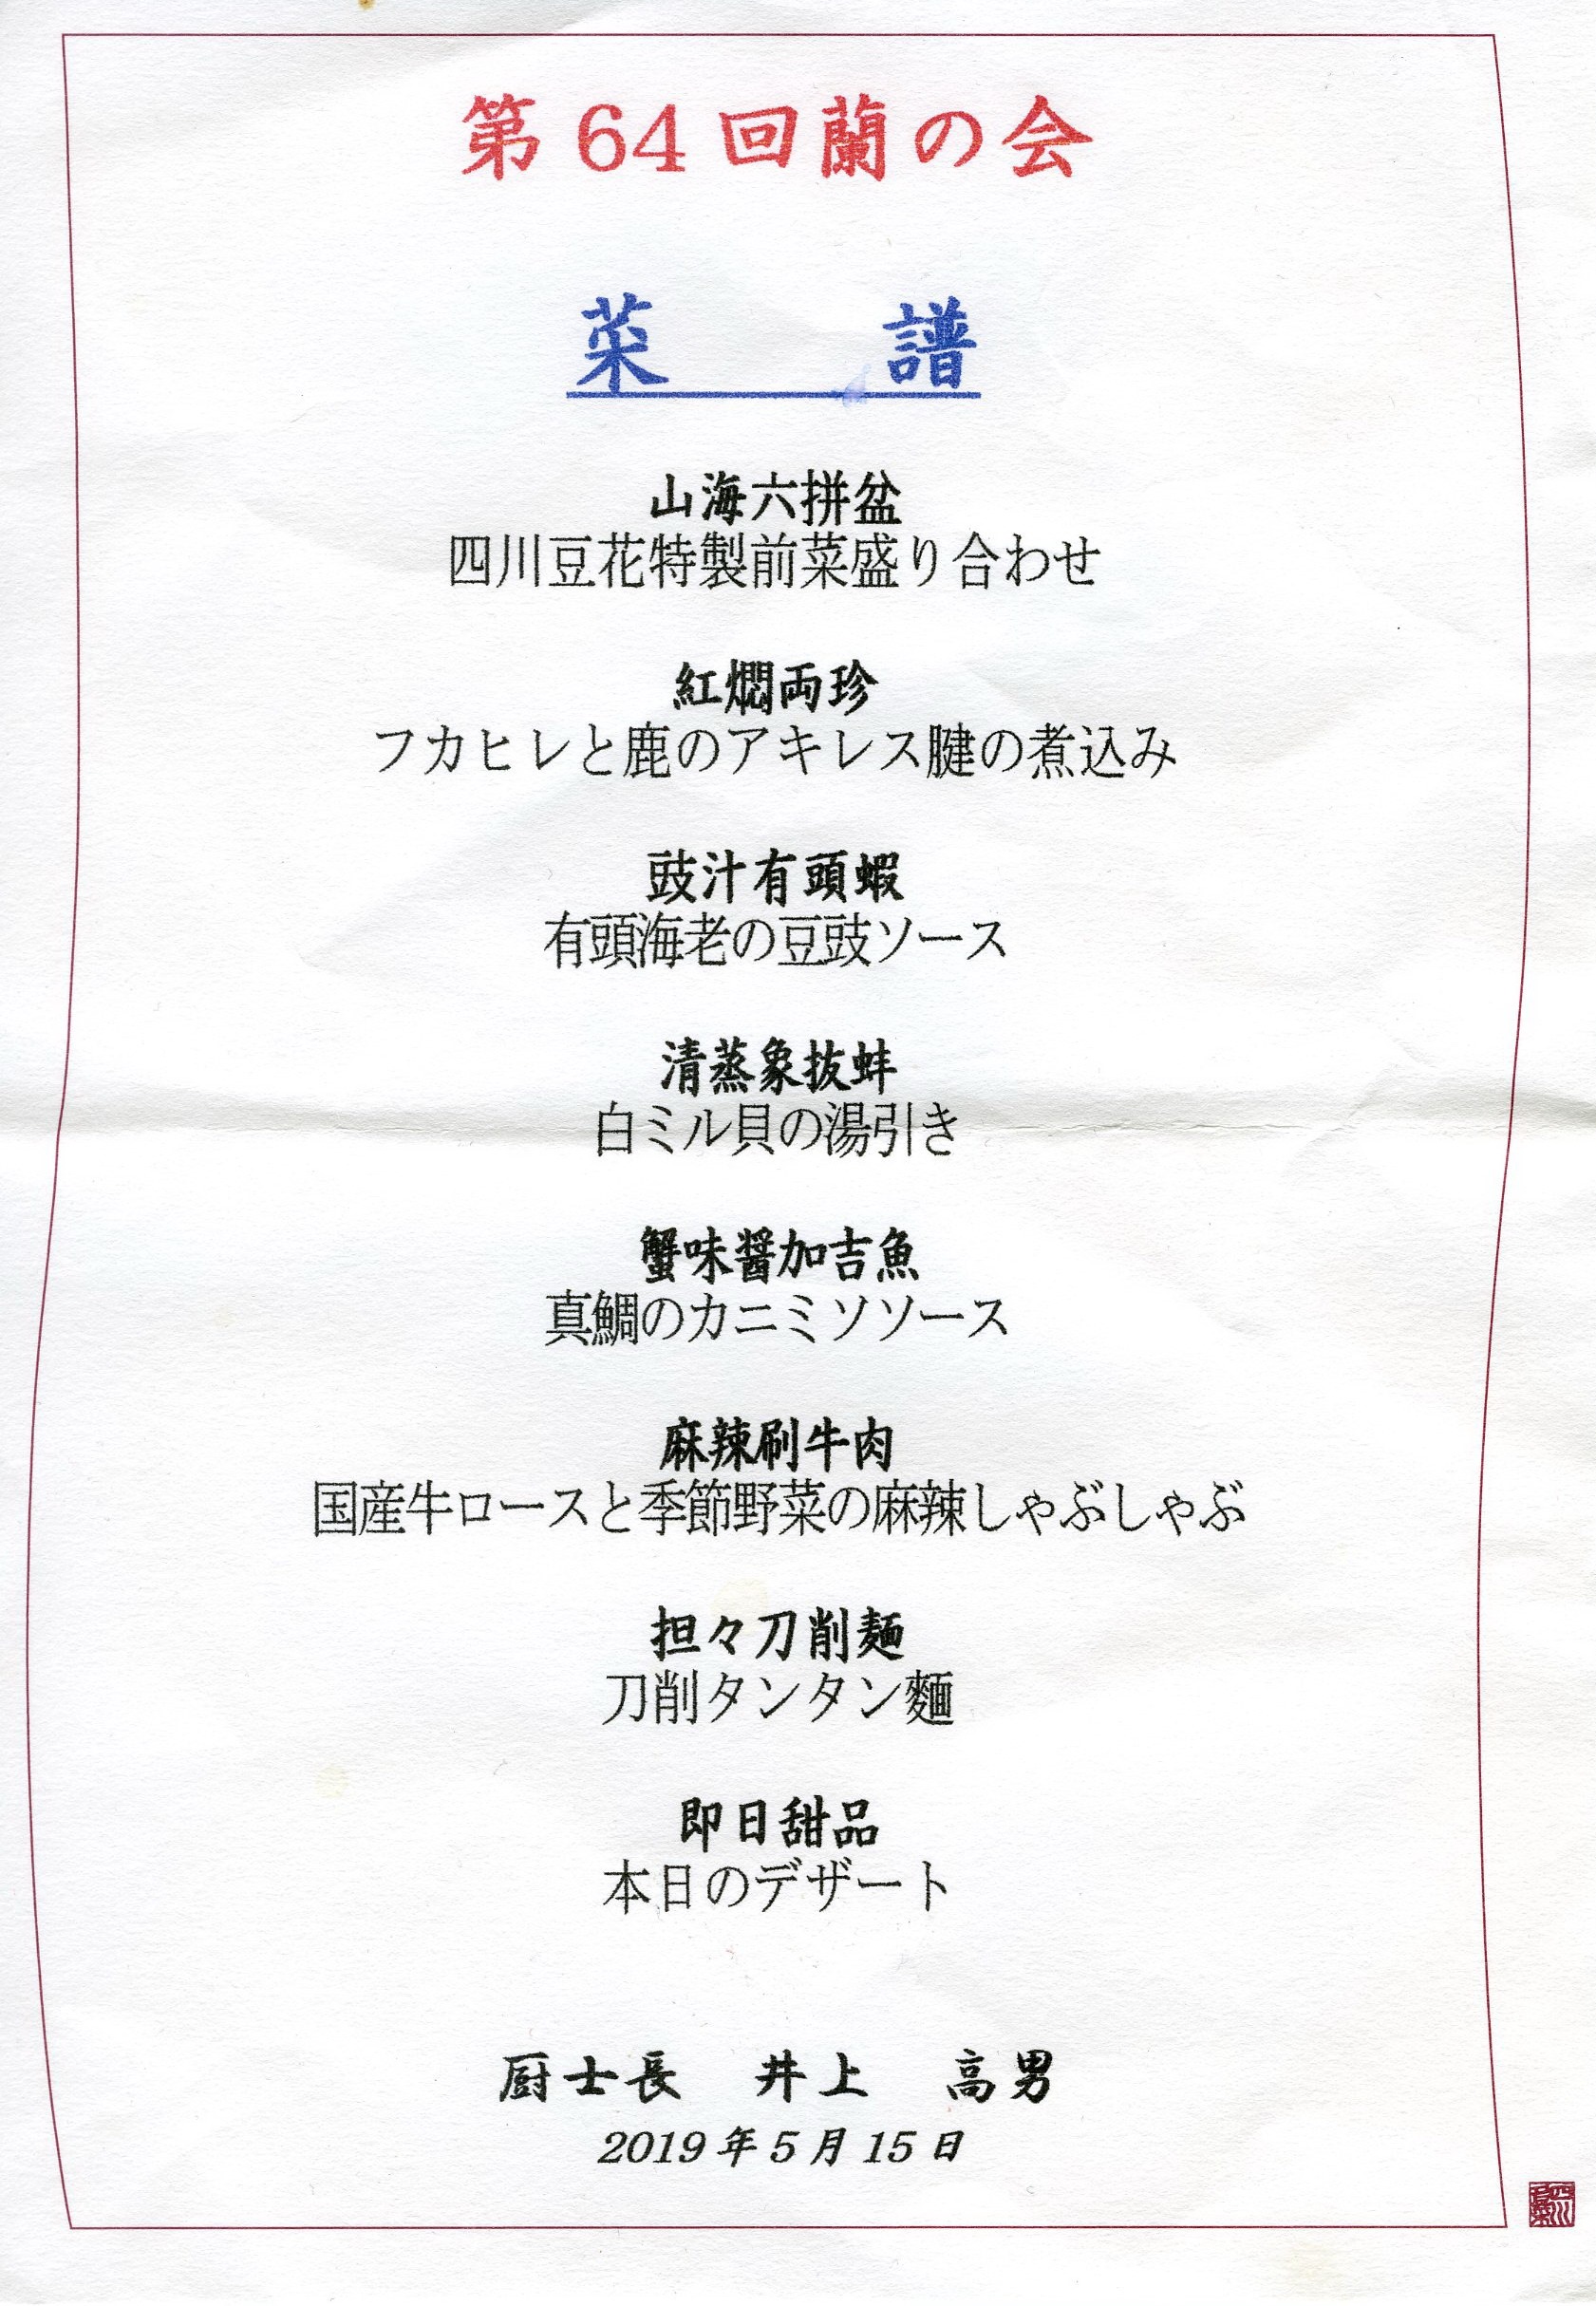 第64回蘭の会
菜　譜
山海六拼盆
四川豆花特製前菜盛り合わせ
紅燜両珍
フカヒレと鹿のアキレス腱の煮込み
豉汁有頭蝦
有頭海老の豆豉ソース
清蒸象抜蚌
白ミル貝の湯引き
蟹味醤加吉魚
真鯛のカニミソソース
麻辣刷牛肉
国産牛ロースと季節野菜の麻辣しゃぶしゃぶ
担々刀削麺
刀削タンタン麵
即日甜品
本日のデザート
厨士長　井上　高男
2019年5月15日
四川豆花